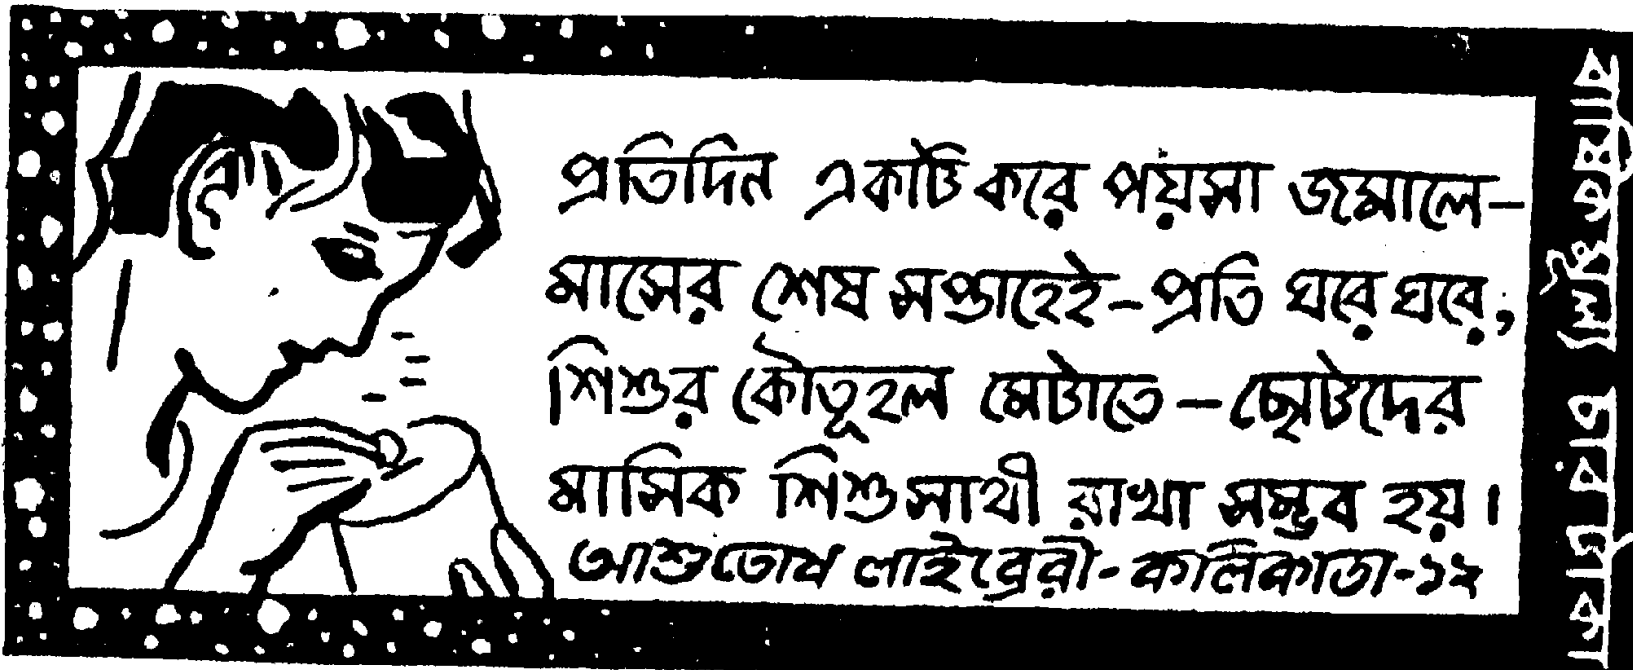 প্রতিদিন একটি করে পয়সা জমালে—
মাসের শেষ সপ্তাহেই—প্রতি ঘরে ঘরে,
শিশুর কৌতূহল মেটাতে—ছোটদের
মাসিক শিশুসাথী রাখা সম্ভব হয়।
আশুতোষ লাইব্রেরী-কলিকাতা-১২
বার্ষিক মূল্য চার টাকা